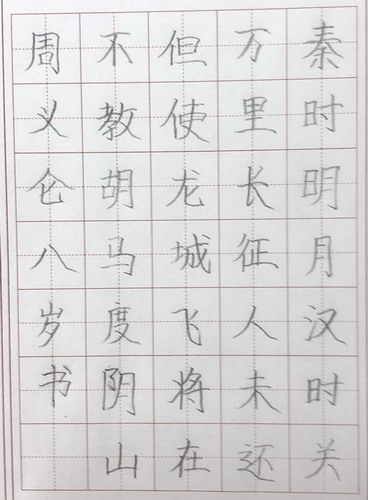 秦时明月汉时关
万里长征人未还
但使龙城飞将在
不教胡马度阴山
周义仑八岁书